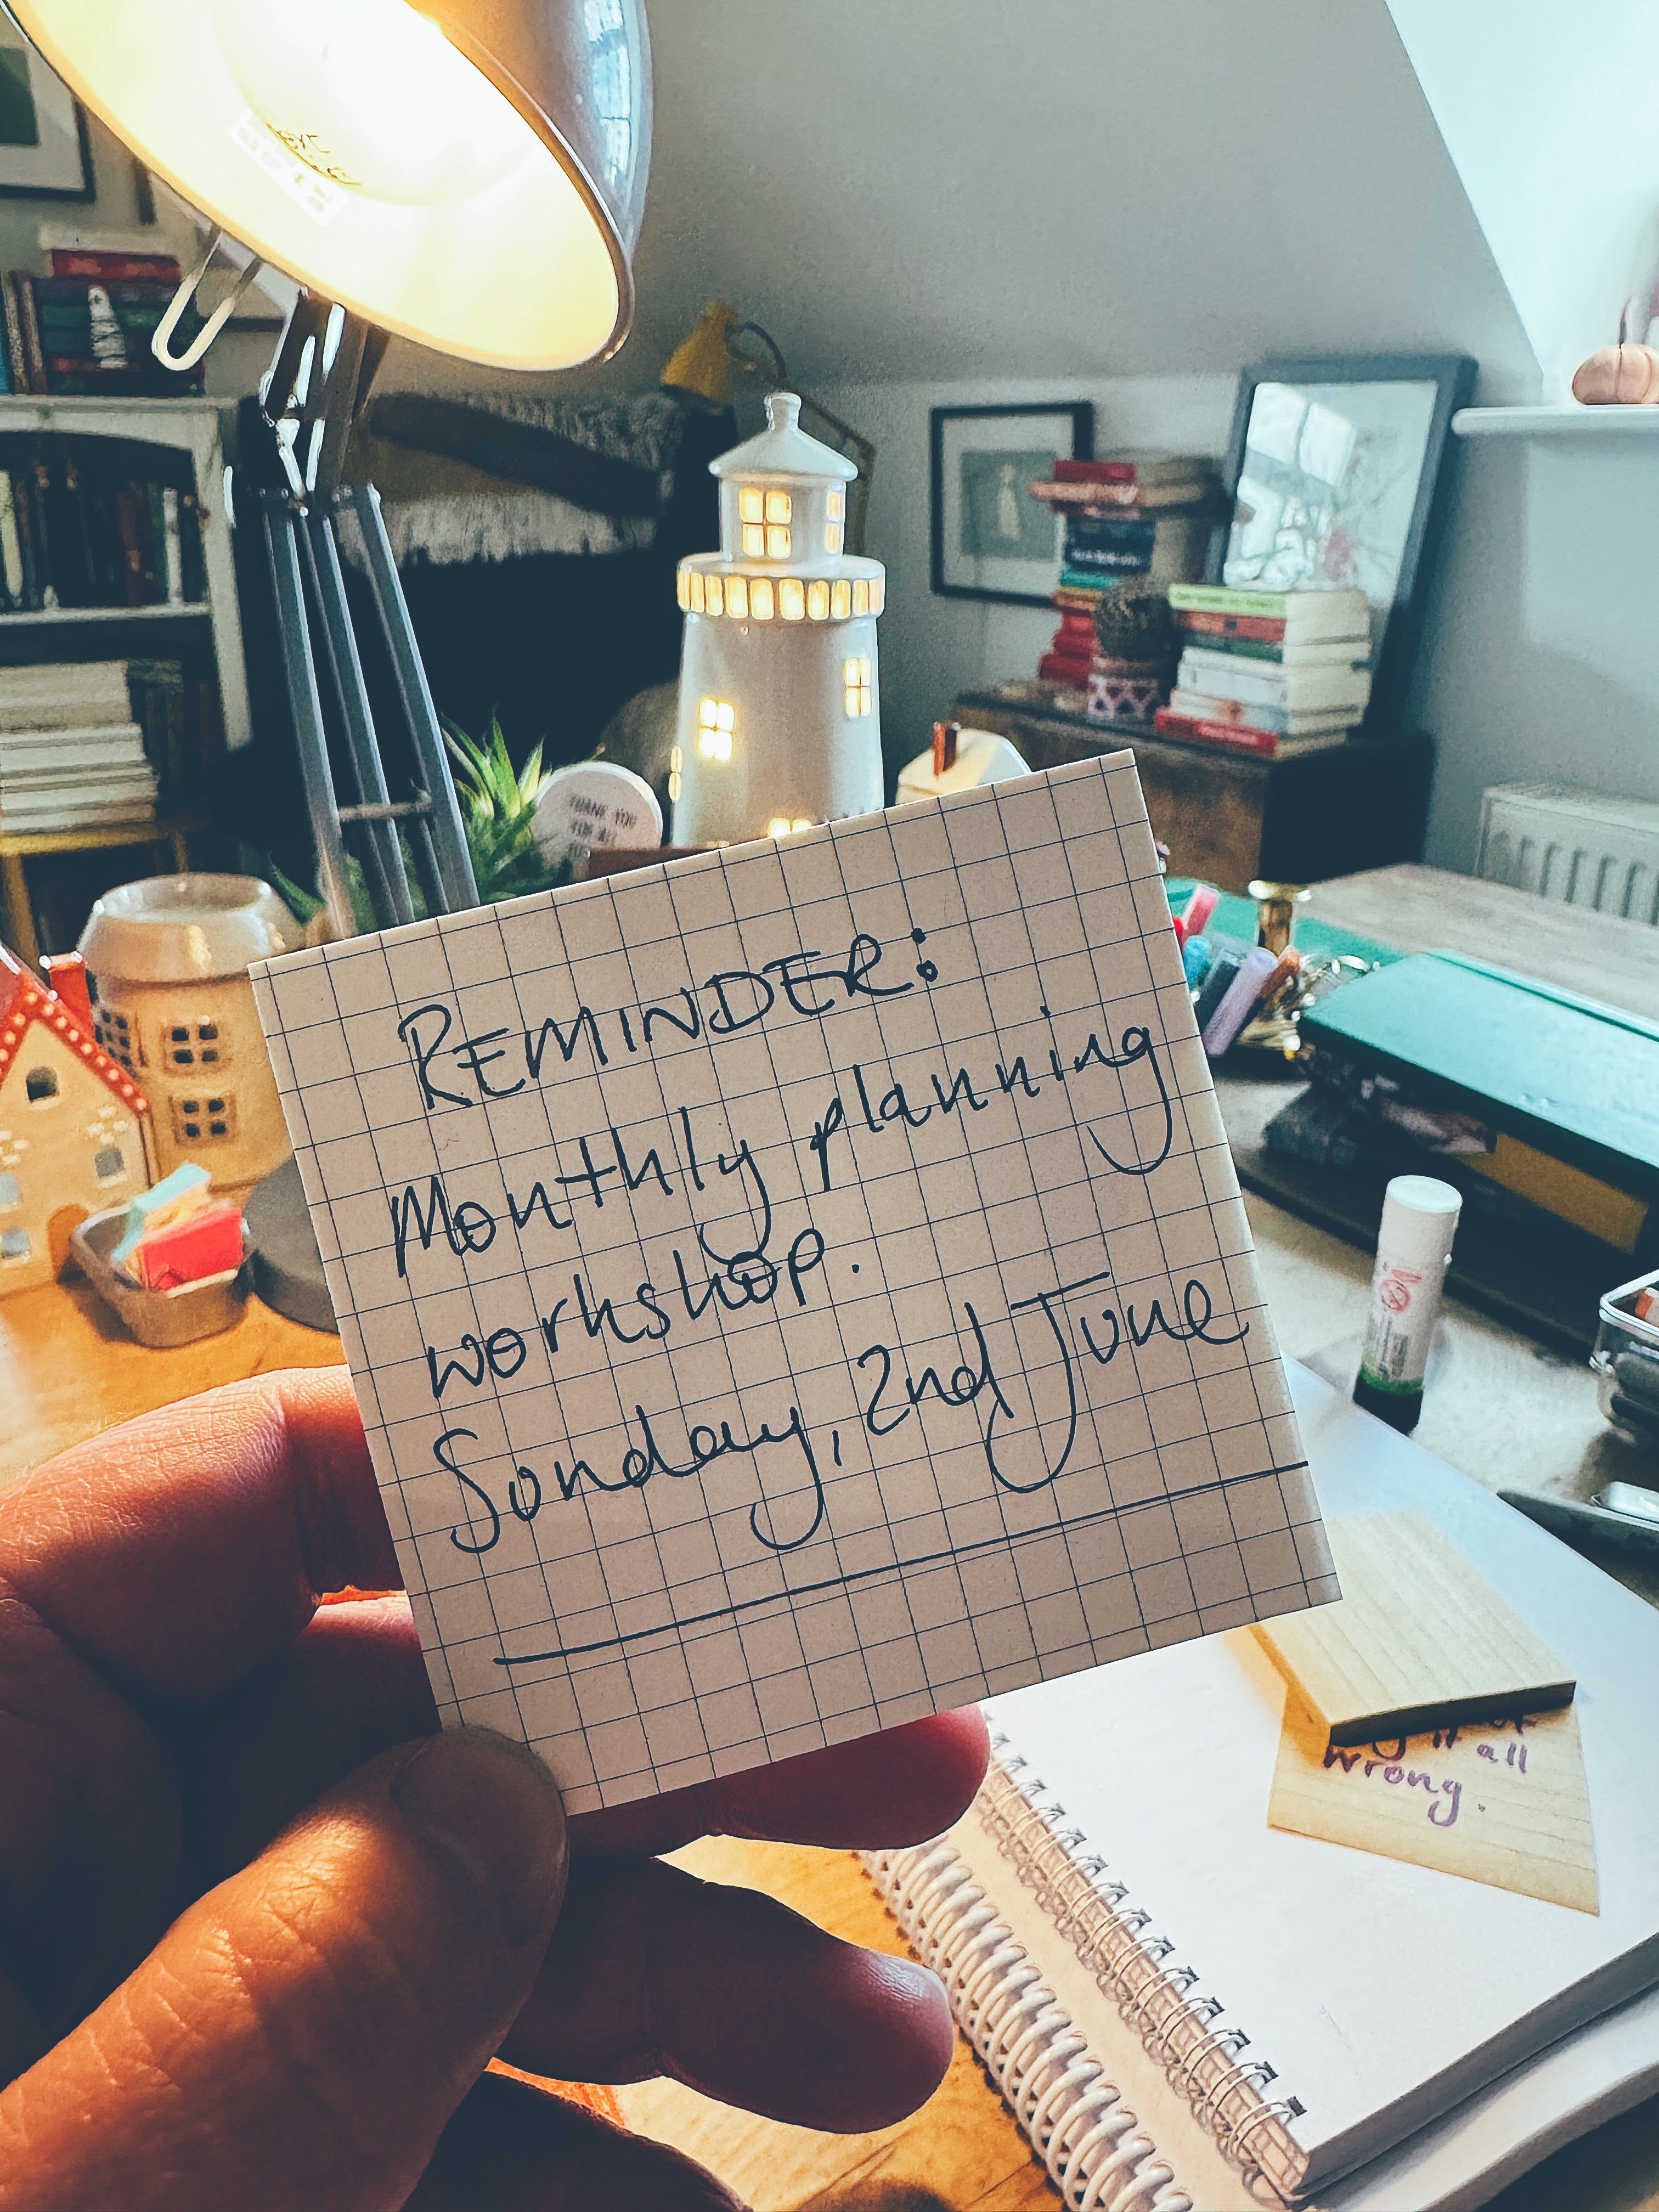 THANK YOU
FOR ALL
REMINDER:
Monthly planning
workshop.
Sunday, 2nd June
it all
wrong.